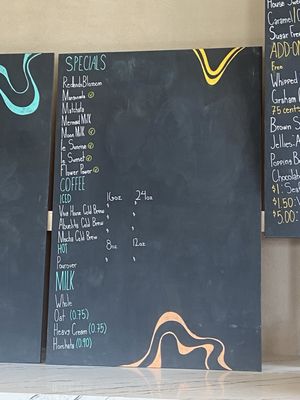 SPECIALS
Redondo Blossom
Matchata
Mermaid MILK
Moon MILK
Ie Sunrise
Ie Sunset
Flower Power
COFFEE
ICED 16oz 24oz
Vive House Cold Brew
Abuelita Cold Brew
Mocha Cold Brew
HOT 8oz 12oz
Pourover
MILK
Whole
Oat (0.75)
Heavy Cream (0.75)
Horchata (0.90)
House Swe
Caramel
Sugar Free
ADD-ON
Free
Whipped
Graham
75 cents
Brown S
Jellies: A
Popping B
Chocolat
$1: Sea
$1.50:
$5.00: